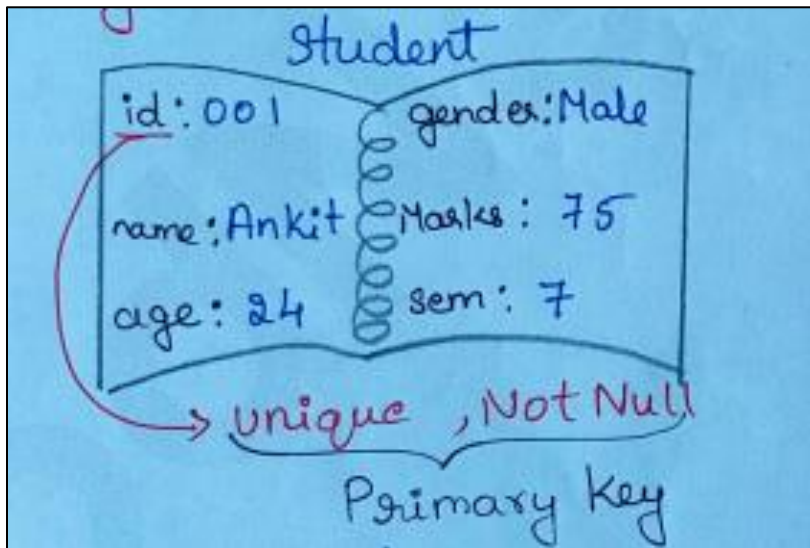 Student
id: 001
name: Ankit
age: 24
gender: Male
Marks: 75
sem: 7
unique, Not Null
Primary Key